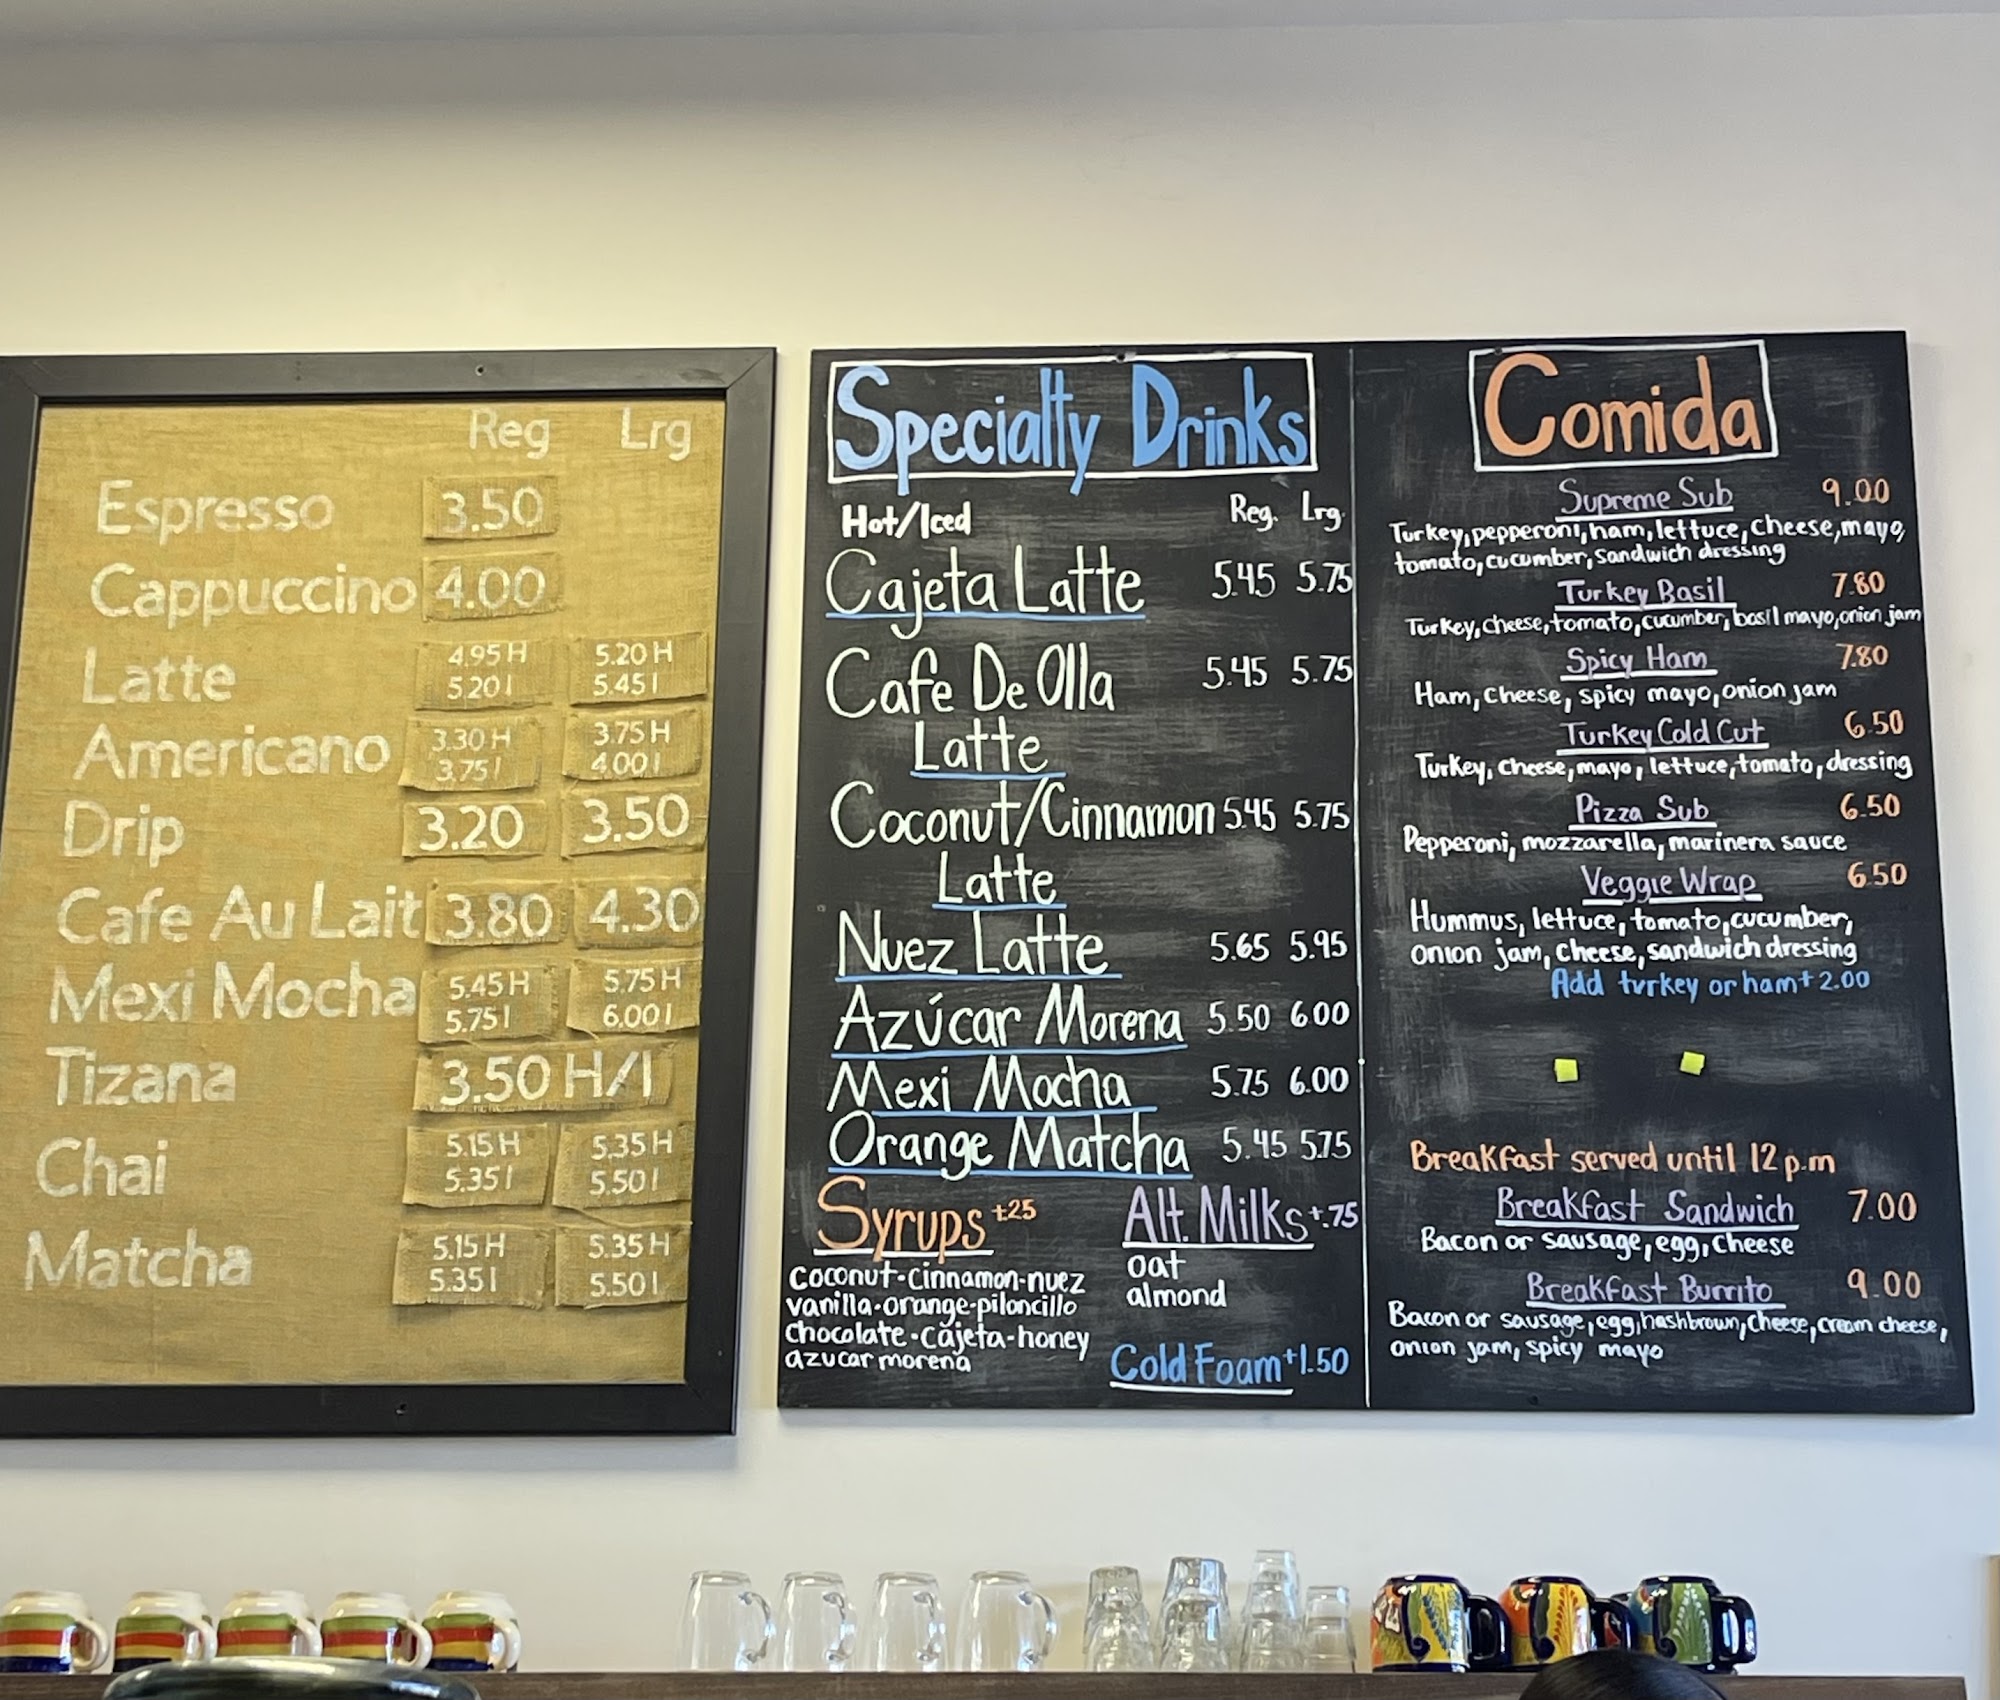 Reg Lrg
Espresso 3.50
Cappuccino 4.00
Latte 4.95 H 5.20 H
5.20 I 5.45 I
Americano 3.30 H 3.75 H
3.75 I 4.00 I
Drip 3.20 3.50
Cafe Au Lait 3.80 4.30
Mexi Mocha 5.45 H 5.75 H
5.75 I 6.00 I
Tizana 3.50 H/I
Chai 5.15 H 5.35 H
5.35 I 5.50 I
Matcha 5.15 H 5.35 H
5.35 I 5.50 I
Specialty Drinks
Hot/Iced Reg. Lrg.
Cajeta Latte 5.45 5.75
Cafe De Olla 5.45 5.75
Latte
Coconut/Cinnamon 5.45 5.75
Latte
Nuez Latte 5.65 5.95
Azúcar Morena 5.50 6.00
Mexi Mocha 5.75 6.00
Orange Matcha 5.45 5.75
Syrups +.25
coconut-cinnamon-nuez
vanilla-orange-piloncillo
chocolate-cajeta-honey
azucar morena
Alt. Milks +.75
oat
almond
Cold Foam +1.50
Comida
Supreme Sub 9.00
Turkey, pepperoni, ham, lettuce, cheese, mayo,
tomato, cucumber, sandwich dressing
Turkey Basil 7.80
Turkey, cheese, tomato, cucumber, basil mayo, onion jam
Spicy Ham 7.80
Ham, cheese, spicy mayo, onion jam
Turkey Cold Cut 6.50
Turkey, cheese, mayo, lettuce, tomato, dressing
Pizza Sub 6.50
Pepperoni, mozzarella, marinera sauce
Veggie Wrap 6.50
Hummus, lettuce, tomato, cucumber,
onion jam, cheese, sandwich dressing
Add turkey or ham + 2.00
Breakfast served until 12 p.m
Breakfast Sandwich 7.00
Bacon or sausage, egg, cheese
Breakfast Burrito 9.00
Bacon or sausage, egg, hashbrown, cheese, cream cheese,
onion jam, spicy mayo